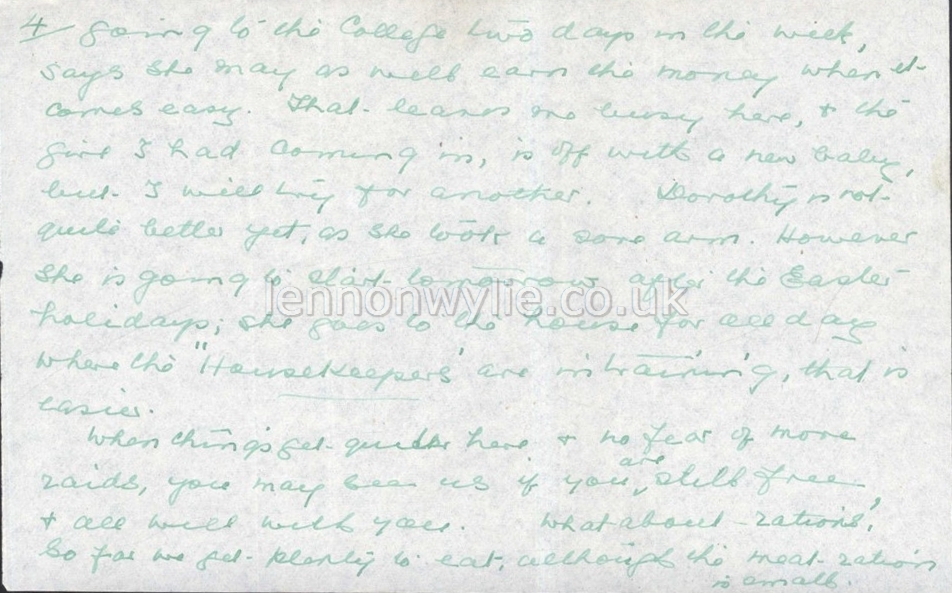 4/ going to the College two days in the week,
says she may as well earn the money when it
comes easy. That leaves me busy here, & the
girl I had coming in, is off with a new baby,
but I will try for another. Dorothy is not
quite better yet, as she took a sore arm. However
she is going to start tomorrow after the Easter
lennonwylie.co.uk
holidays; she goes to the house for all day
where the "Housekeepers" are in training, that is
easier.
When things get quieter here & no fear of more
raids, you may see us if you are still free,
& all well with you. What about rations,
So far we get plenty to eat, although the meat ration
is small.